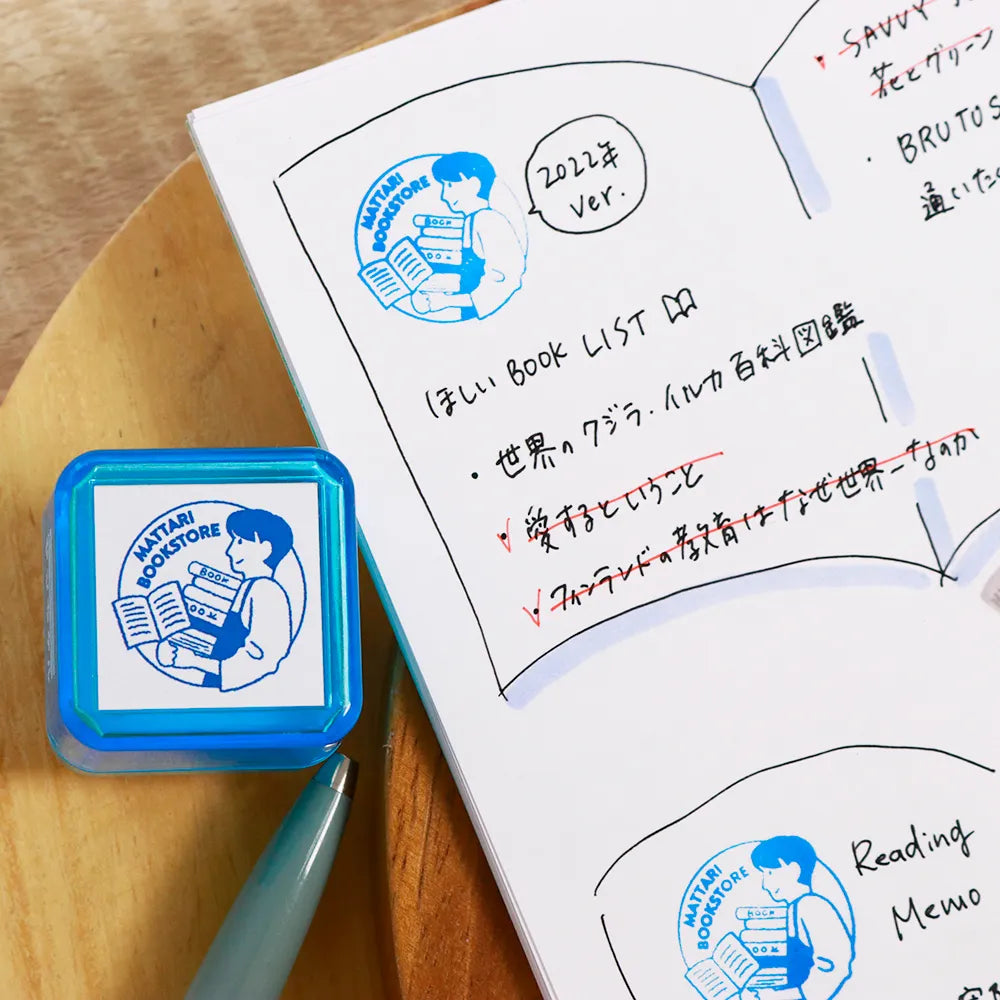 MATTARI
BOOKSTORE
BOOK
OOK
2022年
ver.
ほしい BOOK LIST
・世界のクジラ・イルカ百科図鑑
・愛するということ
・フィンランドの教育はなぜ世界一なのか
・SAVVY
花とグリーン
・BRUTUS
通いたい
MATTARI
BOOKSTORE
BOOK
OOK
MATTARI
BOOKSTORE
BOOK
OOK
Reading
Memo